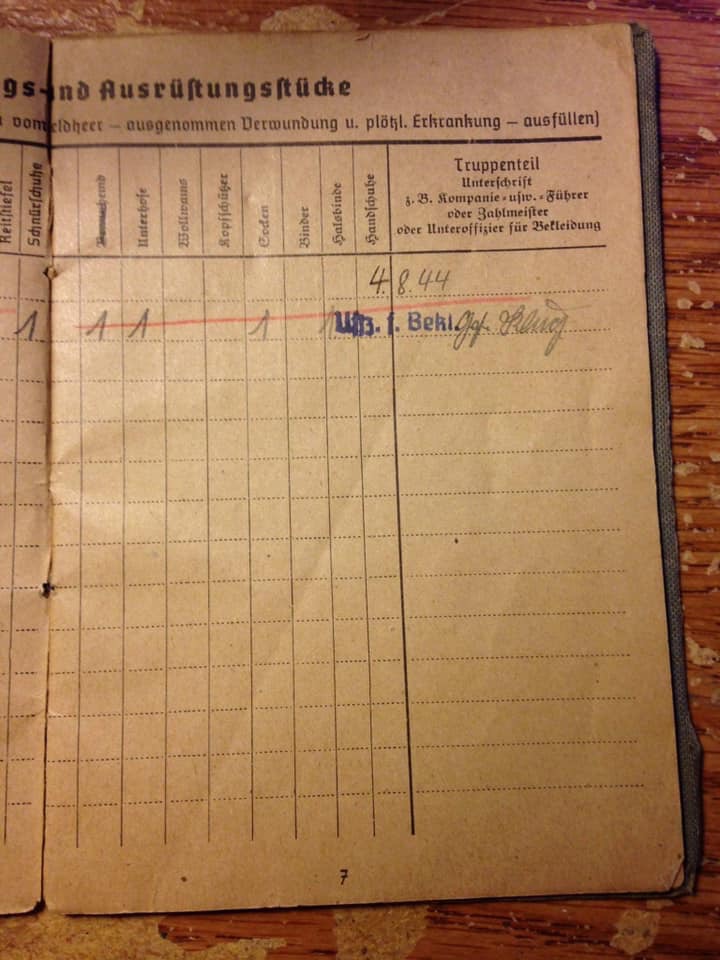 gs- und Ausrüstungsstücke
vom Feldheer – ausgenommen Verwundung u. plötzl. Erkrankung – ausfüllen)
Reitstiefel
Schnürschuhe
Unterhose
Wollwams
Kopfschützer
Socken
Binder
Halsbinde
Handschuhe
Truppenteil
Unterschrift
z. B. Kompanie- usw. -Führer
oder Zahlmeister
oder Unteroffizier für Bekleidung
4.8.44
1 1 1 1 1 Uffz. f. Bekl.
7